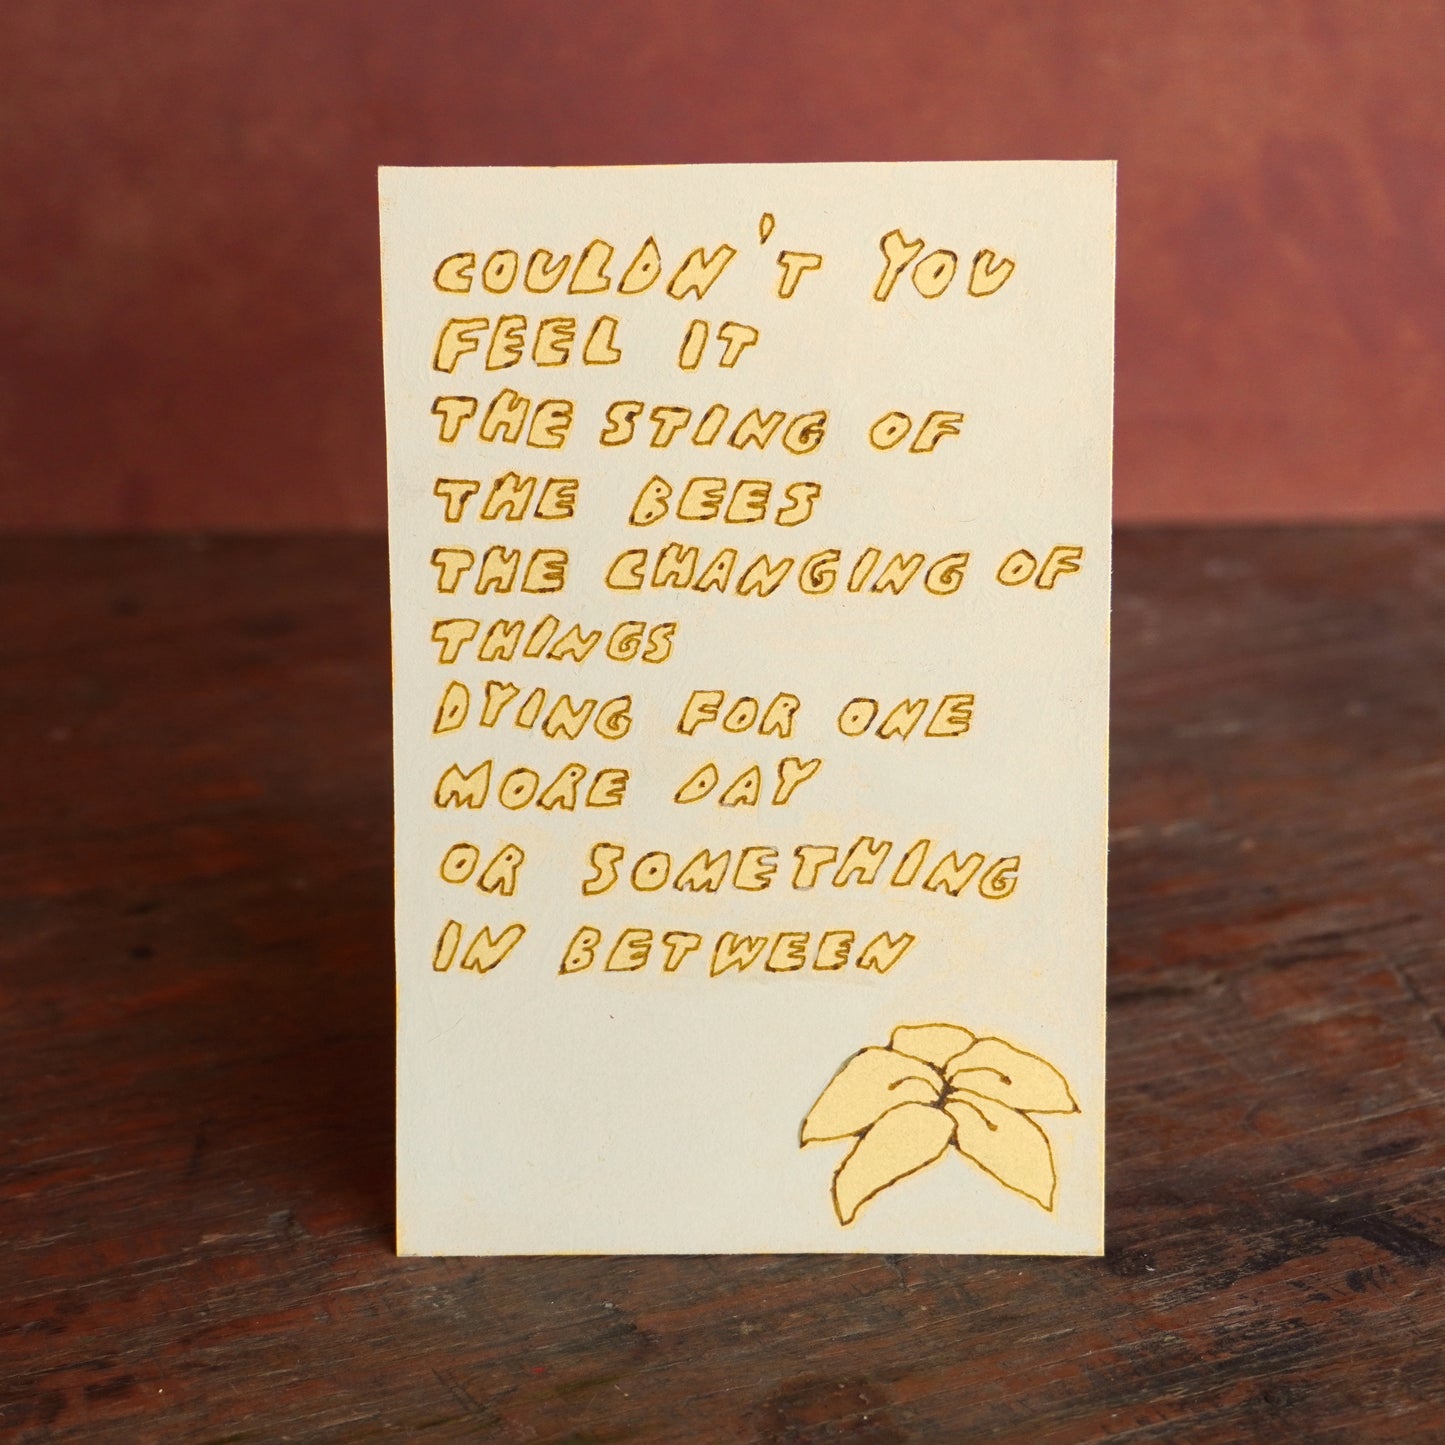 COULDN'T YOU
FEEL IT
THE STING OF
THE BEES
THE CHANGING OF
THINGS
DYING FOR ONE
MORE DAY
OR SOMETHING
IN BETWEEN